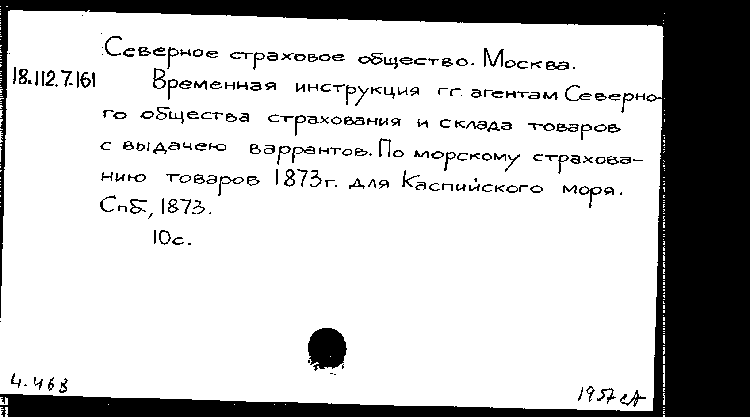 Северное страховое общество. Москва.
18.112.7.161
Временная инструкция гг. агентам Северно-
го общества страхования и склада товаров
с выдачею варрантов. По морскому страхова-
нию товаров 1873 г. для Каспийского моря.
Спб, 1873.
10 с.
4.468
1957